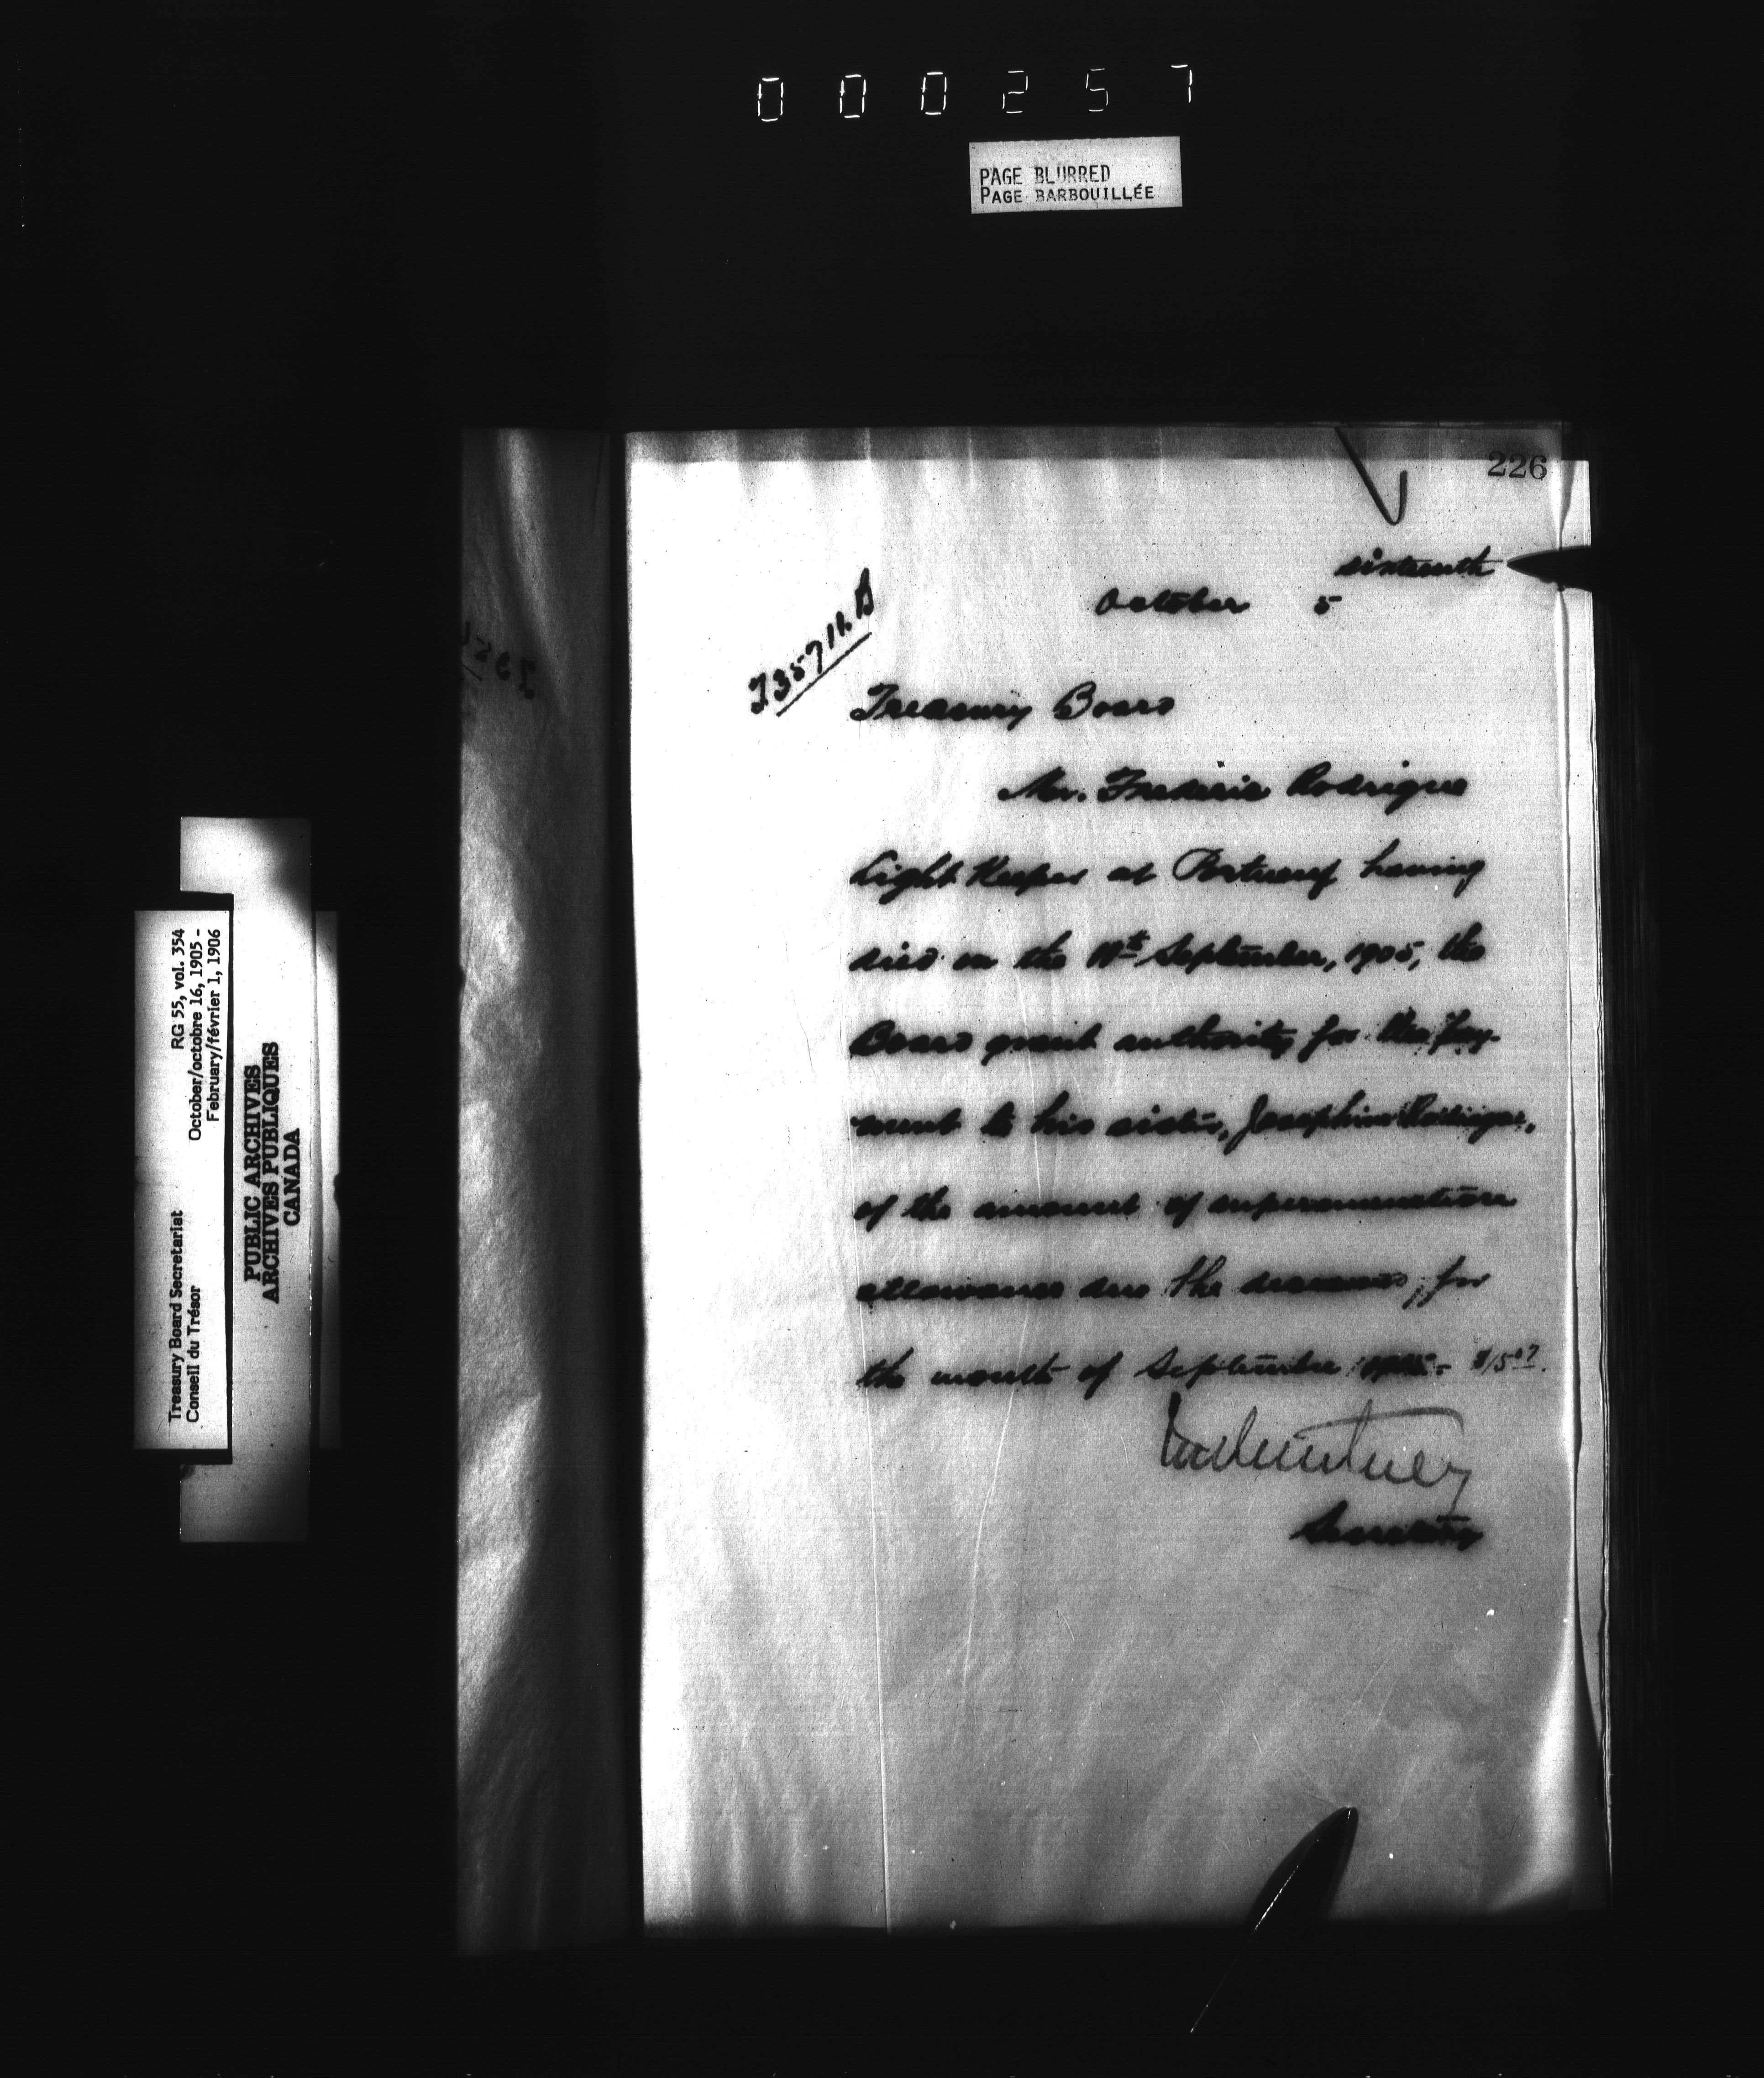 000257
PAGE BLURRED
PAGE BARBOUILLÉE
226
sixteenth
October 5
Treasury Board
Mr. Frederic Rodrigue
Light Keeper at Portneuf having
died on the September, 1905, the
Board grant authority for the pay-
ment to his sister, Josephine Rodrigue,
of the amount of superannuation
allowance due the deceased, for
the month of September
Secretary
Treasury Board Secretariat RG 55, vol. 354
Conseil du Trésor October/octobre 16, 1905 -
February/février 1, 1906
PUBLIC ARCHIVES
ARCHIVES PUBLIQUES
CANADA